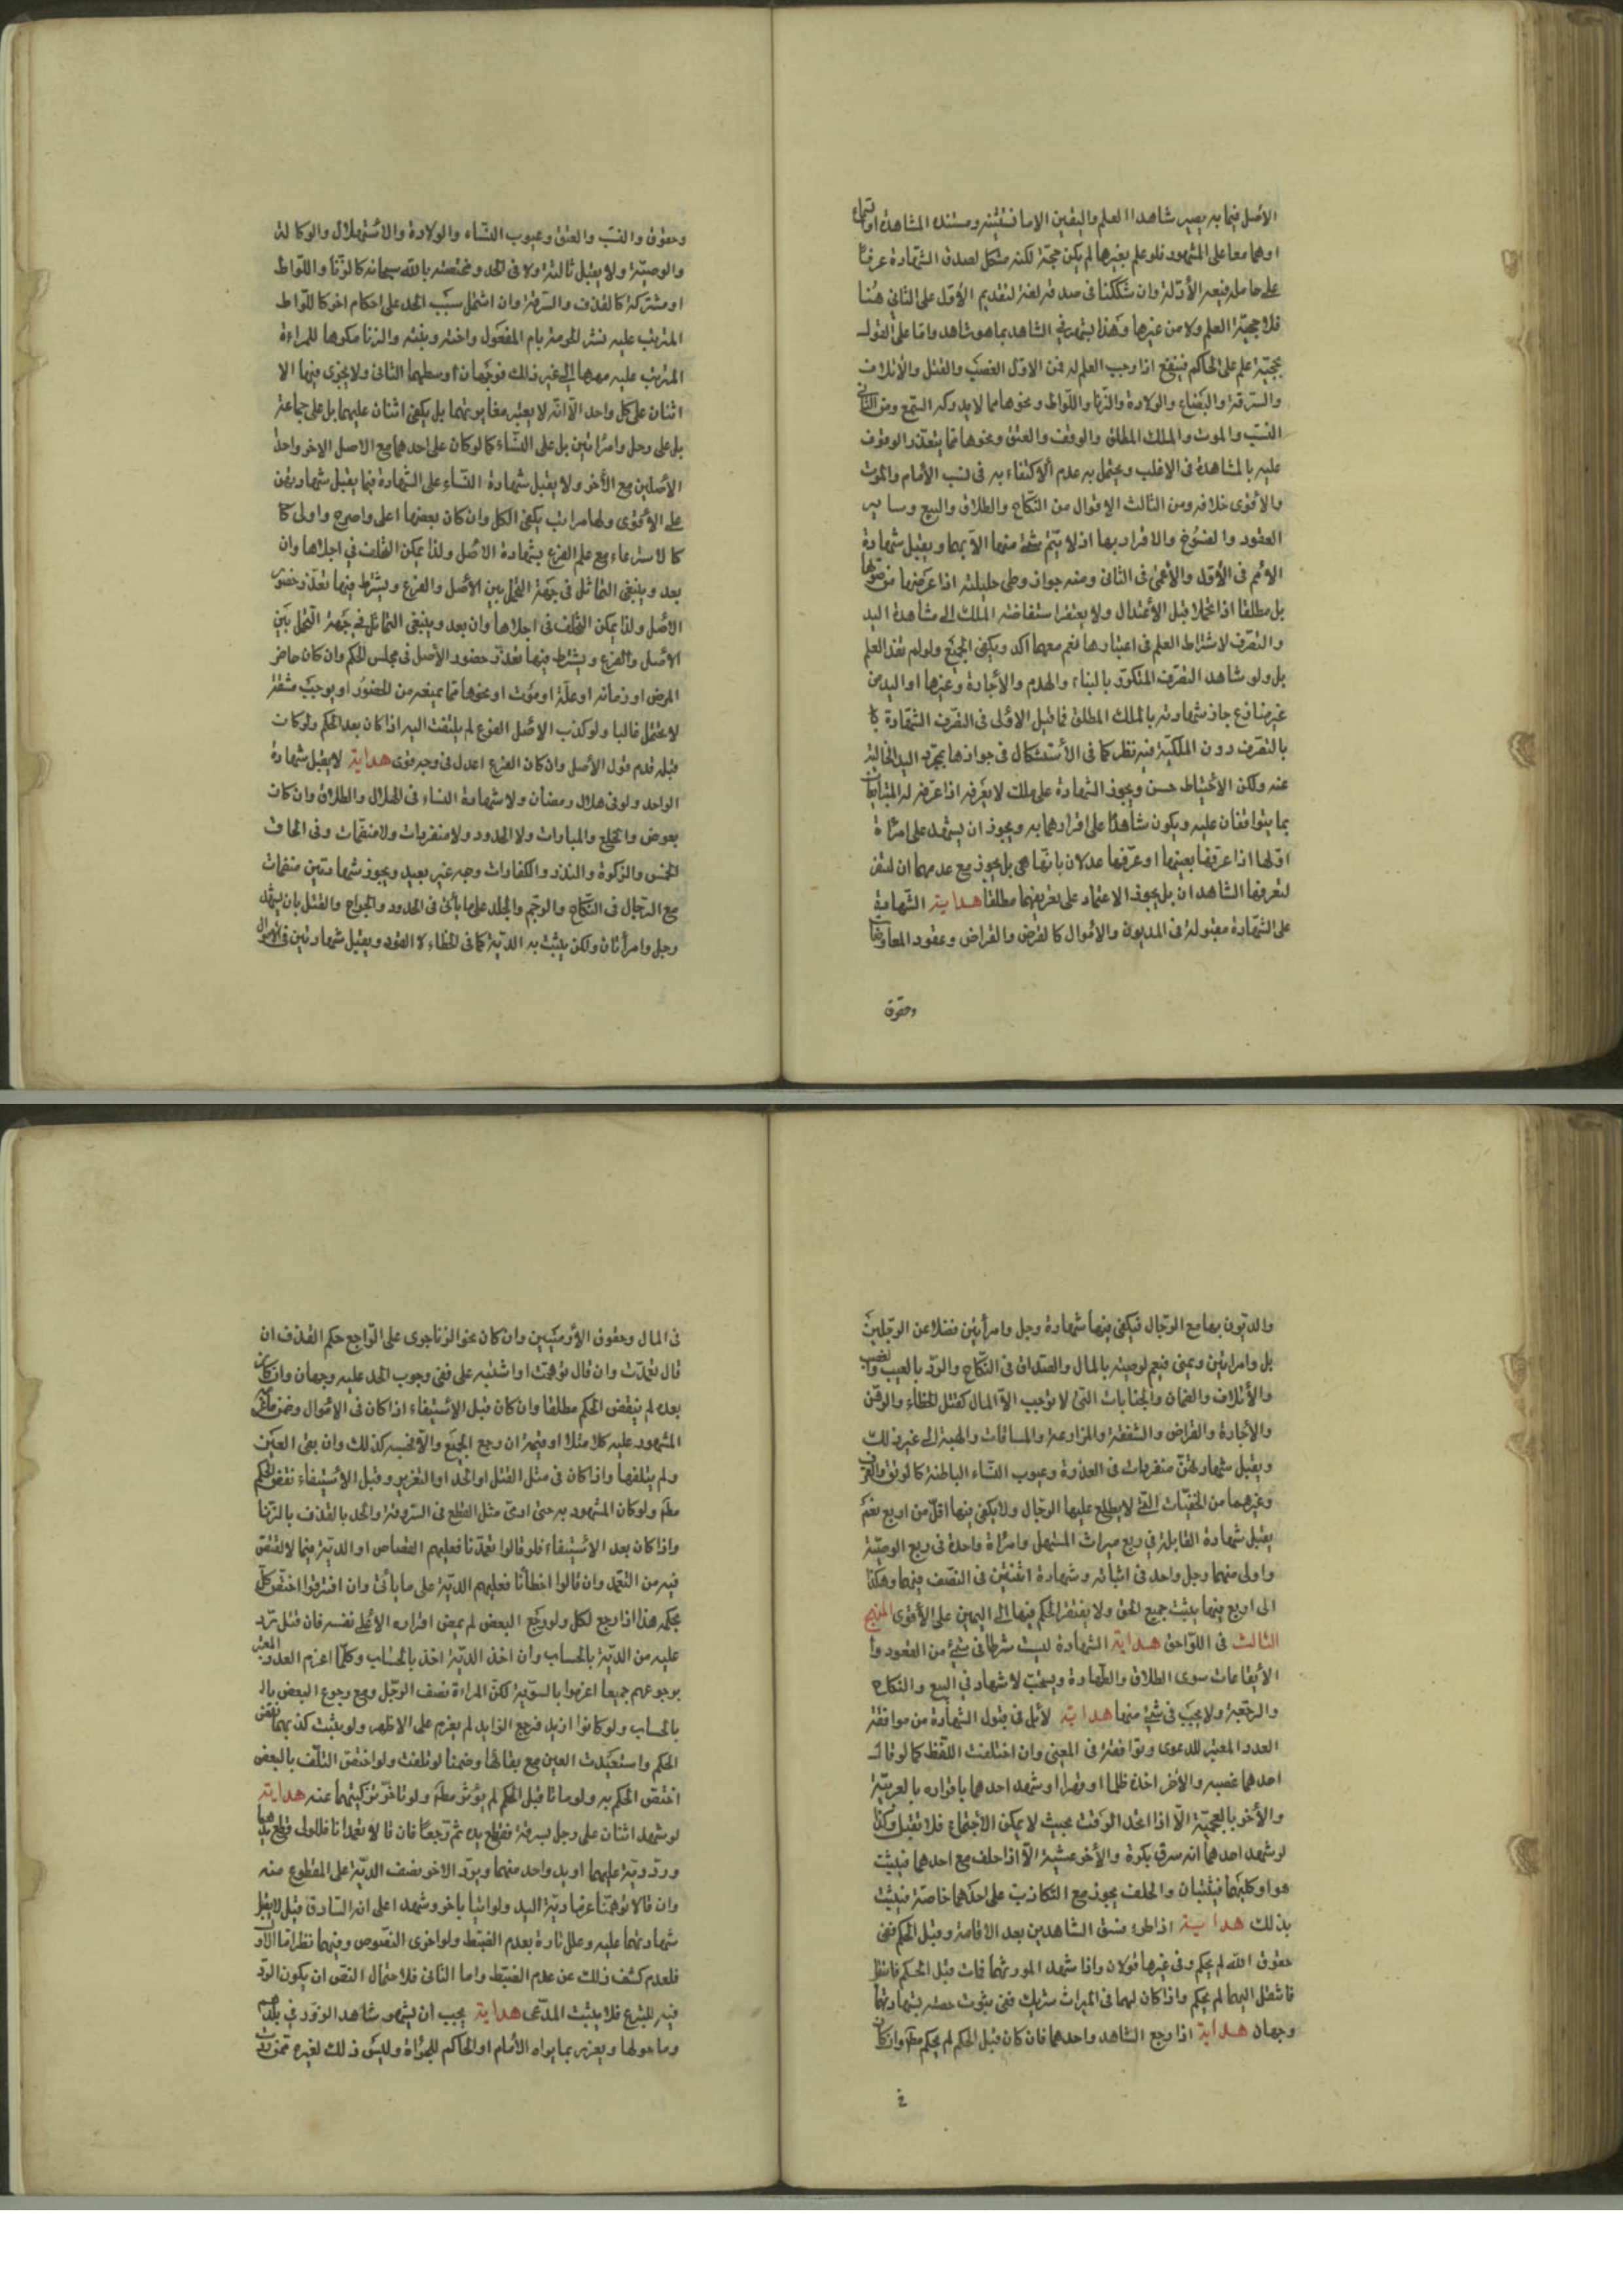 الاصل فيما به يصير شاهدا العلم واليقين الا ما نستثنيه ومستنده المشاهدة او السماع
او هما معا على المشهود فلو علم بغيرها لم يكن حجة لكنه مشكل لصدق الشهادة عرفا
فلا حجية العلم ولا من غيرها وهذا ينتهي في الشاهد بما هو شاهد واما على القول
بحجية علم على الحاكم فينفع اذا وجب العلم له فمن الاول الغصب والقتل والاتلاف
والسرقة والرضاع والولادة والزنا واللواط ونحوها مما لا يدركه السمع ومن الثاني
النسب والموت والملك المطلق والوقف والعتق ونحوها مما يتعذر الوقوف
عليه بالمشاهدة في الاغلب ويحتمل به عدم الاكتفاء به في نسب الامام والموت
والاقوى خلافه ومن الثالث الاقوال من النكاح والطلاق والبيع وساير
العقود والفسوخ والاقرار بها اذ لا يتم شئ منها الا بهما ويقبل شهادة
الاصم في الاول والاعمى في الثاني ومنه جواز وطى حليلته اذا عرفها من صوتها
بل مطلقا اذا تحملا قبل الاعتدال ولا يفتقر استفاضة الملك الى مشاهدة اليد
والتصرف لاشتراط العلم في اعتبارها نعم معهما اكد ويكفي الجميع ولو لم تفد العلم
بل ولو شاهد التصرف المتكرر بالبناء والهدم والاجارة وغيرها او اليد من
غير منازع جاز شهادته بالملك المطلق فما قيل الاولى في التصرف الشهادة
بالتصرف دون الملكية فيه نظر كما في الاستشكال في جوازها بمجرد اليد الخالية
عنه ولكن الاحتياط حسن ويجوز الشهادة على ملك لا يعرفه اذا عرفه له المتبايعان
بما يتوافقان عليه ويكون شاهدا على اقرارهما به ويجوز ان يشهد على امرأة
او لها اذا عرفها بعينها او عرفها عدلان بانها هي بل يجوز مع عدمهما ان تسفر
لتعرفها الشاهدان بل يجوز الاعتماد على تعريفهما مطلقا هداية الشهادة
على الشهادة مقبولة في المديون والاموال كالقرض والقراض وعقود المعاوضات
وحقوق
وحقوق والنسب والعتق وعيوب النساء والولادة والاستهلال والوكالة
والوصية ولا يقبل ثالثة ولا في الحد ومختصه بالله سبحانه كالزنا واللواط
او مشتركة كالقذف والسرقة وان اشتمل سبب الحد على احكام اخر كاللواط
المترتب عليه نشر الحرمة بام المفعول واخته وبنته والزنا مكرها للمراءة
المترتب عليه مهرها الى غير ذلك فوجهان اوسطهما الثاني ولا يجزى فيها الا
اثنان على كل واحد الا انه لا يعتبر مغايرتهما بل يكفي اثنان عليهما بل على جماعة
بل على رجل وامرأتين بل على النساء كما لو كان على احدهما مع الاصل الاخر واحد
الاصلين مع الاخر ولا يقبل شهادة النساء على الشهادة فيما يقبل شهادتهن
على الاقوى ولها مراتب يكفي الكل وان كان بعضها اعلى واصرح واولى كما
كالاسترعاء مع علم الفرع بشهادة الاصل ولذا يمكن التخلف في اجلاها وان
بعد وينبغي التماثل في جهة التحمل بين الاصل والفرع ويشترط فيها تعذر حضور
الاصل ولذا يمكن التخلف في اجلاها وان بعد وينبغي التماثل في جهة التحمل بين
الاصل والفرع ويشترط فيها تعذر حضور الاصل في مجلس الحكم وان كان حاضر
المرض او زمانه او علة او موت او نحوها مما يمنعه من الحضور او يوجب مشقة
لا يحتمل غالبا ولو كذب الاصل الفرع لم يلتفت اليه اذا كان بعد الحكم ولو كان
قبله قدم قول الاصل وان كان الفرع اعدل في وجه قوى هداية لا يقبل شهادة
الواحد ولو في هلال رمضان ولا شهادة النساء في الهلال والطلاق وان كان
بعوض والخلع والمبارات ولا الحدود ولا منفردات ولا منضمات وفي الحاق
الخمس والزكوة والنذر والكفارات وجه غير بعيد ويجوز شهادتهن منضمات
مع الرجال في النكاح والرجم والجلد على ما يأتي في الحدود والجراح والقتل بان يشهد
رجل وامرأتان ولكن يثبت به الدية كما في الخطاء لا القود ويقبل شهادتهن في الاموال
والديون بها مع الرجال فيكفي فيها شهادة رجل وامرأتين فضلا عن الرجلين
بل وامراتين ويمين فيعم لوصية بالمال والصداق في النكاح والرد بالعيب والغصب
والاتلاف والضمان والجنايات التي لا توجب الا المال كقتل الخطاء والرهن
والاجارة والقراض والشفعة والمزارعة والمساقات والهبة الى غير ذلك
ويقبل شهادتهن منفردات في العذرة وعيوب النساء الباطنة كالرتق والقرن
وغيرهما من الخفيات التي لا يطلع عليها الرجال ولا يكفي فيها اقل من اربع نعم
يقبل شهادة القابلة في ربع ميراث المستهل وامرأة واحدة في ربع الوصية
واولى منهما رجل واحد في اثباته وشهادة اثنتين في النصف فيهما وهكذا
الى اربع فيها يثبت جميع الحق ولا يفتقر الحكم فيها الى اليمين على الاقوى المنهج
الثالث في اللواحق هداية الشهادة ليست شرطا في شئ من العقود وا
الايقاعات سوى الطلاق والظهارة ويستحب لاشهاد في البيع والنكاح
والرجعة ولا يجب في شئ منها هداية لا بد في قبول الشهادة من موافقة
العدد المعتبر للدعوى وتوافقه في المعنى وان اختلفت اللفظ كما لو قال
احدهما غصبه والاخر اخذه ظلما او قهرا او شهد احدهما باقراره بالعربية
والاخر بالعجمية الا اذا اتحد الوقت بحيث لا يمكن الاجتماع فلا تقبل وكذا
لو شهد احدهما انه سرق بكرة والاخر عشية الا اذا حلف مع احدهما فيثبت
هو او كليهما فيثبتان والحلف يجوز مع التكاذب على احدهما خاصة فيثبت
بذلك هداية اذا طرء فسق الشاهدين بعد الاقامة وقبل الحكم ففي
حقوق الله لم يحكم وفي غيرها قولان واذا شهد المورثهما فمات قبل الحكم فانتقل
فانتقل اليهما لم يحكم واذا كان لهما في الميراث شريك ففي ثبوت حصته بشهادتهما
وجهان هداية اذا رجع الشاهد واحدهما فان كان قبل الحكم لم يحكم مطلقا وان كان
في
في المال وحقوق الآدميين وان كان نحو الزنا جرى على الراجع حكم القذف ان
قال تعمدت وان قال توهمت او اشتبه على ففي وجوب الحد عليه وجهان وان كان
بعده لم ينقض الحكم مطلقا وان كان قبل الاستيفاء اذا كان في الاموال وضمن
المشهود عليه كلا مثلا او قيمة ان رجع الجميع والا بحسبه كذلك وان بقي العين
ولم يتلفها واذا كان في مثل القتل او الحد او التعزير وقبل الاستيفاء نقض الحكم
مطلقا ولو كان المشهود به حق ادمى مثل القطع في السرقة والحد بالقذف بالزنا
واذا كان بعد الاستيفاء فلو قالوا تعمدنا فعليهم القصاص او الدية فيما لا يقتص
فيه من التعمد وان قالوا اخطأنا فعليهم الدية على ما يأتي وان افترقوا اختص كل
بحكمه هذا اذا رجع لكل ولو رجع البعض لم يمض اقراره الا على نفسه فان قتل ترد
عليه من الدية بالحساب وان اخذ الدية اخذ بالحساب وكلما اغرم العدد المعتبر
برجوعهم جميعا اغرموا بالسوية لكن المراءة نصف الرجل ومع رجوع البعض بال
بالحساب ولو كانوا ازيد فرجع الزايد لم يغرم على الاظهر ولو يثبت كذبهما نقض
الحكم واستعيدت العين مع بقائها وضمنا لو تلفت ولو اختص التلف بالبعض
اختص الحكم به ولو ماتا قبل الحكم لم يؤثر مطلقا ولو تأخر تزكيتهما عنه هداية
لو شهد اثنان على رجل بسرقة فقطع يده ثم رجعا فان قالا تعمدنا فللولى قطع يديهما
ورد دية عليهما او يد واحد منهما ويرد الاخر نصف الدية على المقطوع منه
وان قالا توهمنا غرما دية اليد ولو اتيا باخر وشهدا على انه السارق قيل لا يقبل
شهادتهما عليه وعلل تارة بعدم الضبط ولو اخرى النصوص وفيهما نظر اما الاول
فلعدم كشف ذلك عن عدم الضبط واما الثاني فلا حتمال النص ان يكون الرد
فيه للتبرع فلا يثبت المدعى هداية يجب ان يشهر شاهد الزور في بلدهم
وما حولها ويعزر بما يراه الامام او الحاكم للجرأة وليس ذلك لغيره